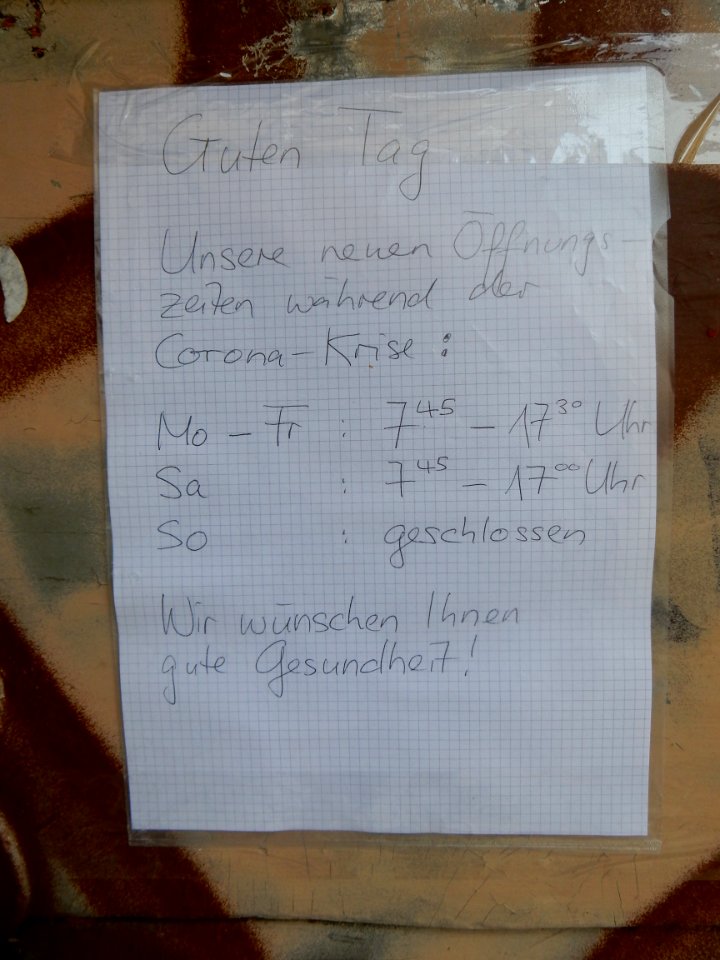 Guten Tag
Unsere neuen Öffnungs-
zeiten während der
Corona-Krise:
Mo - Fr : 7⁴⁵ - 17³⁰ Uhr
Sa : 7⁴⁵ - 17⁰⁰ Uhr
So : geschlossen
Wir wünschen Ihnen
gute Gesundheit!